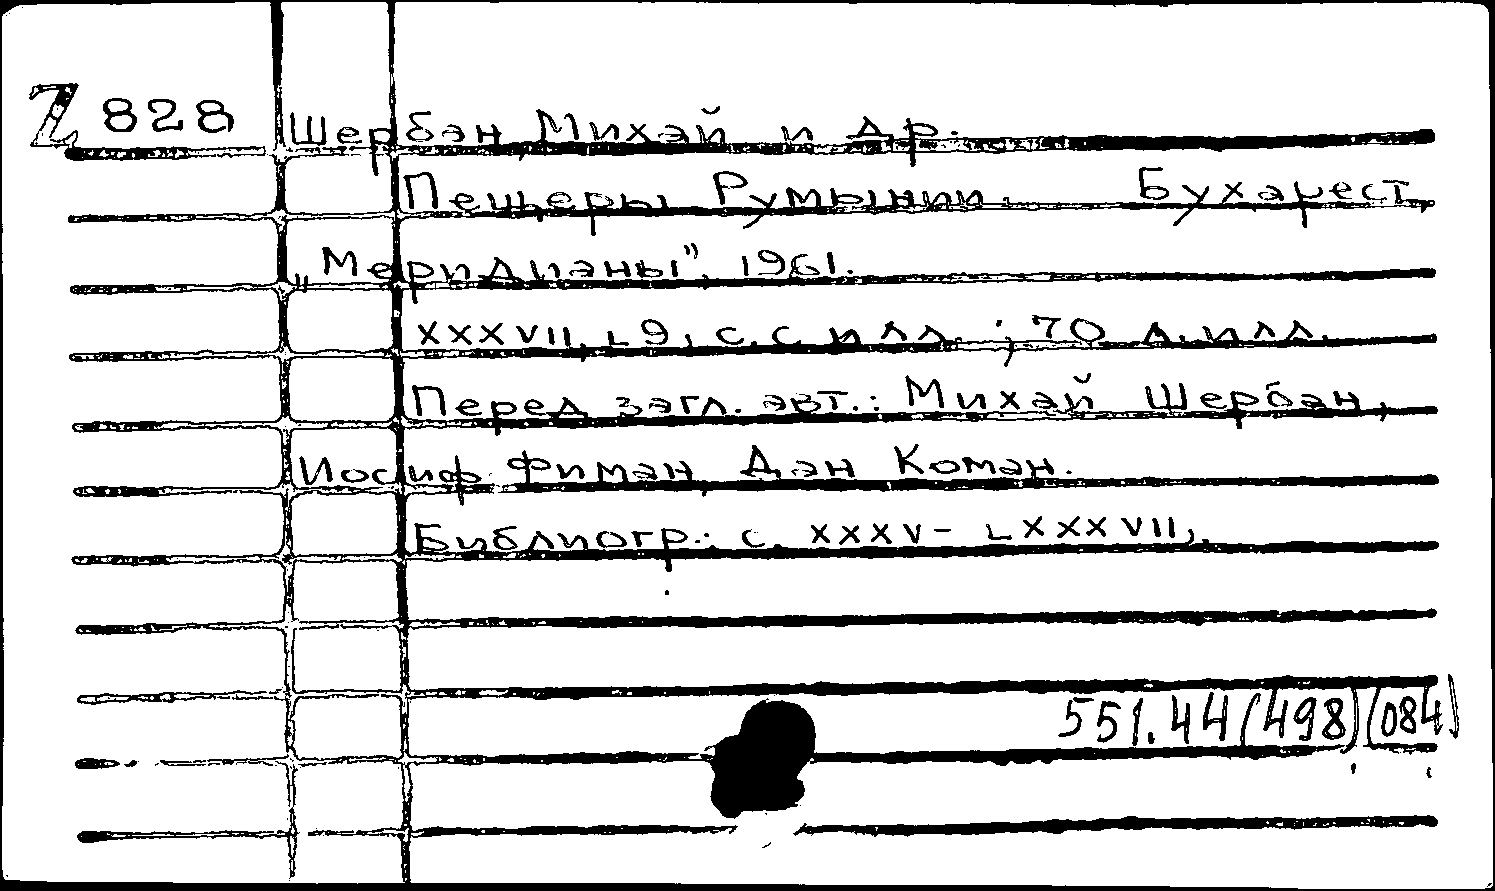 Z 828 Шербан, Михай и др.
Пещеры Румынии. Бухарест,
„Меридианы", 1961.
XXXVII, L9, с. с илл.; 70 л. илл.
Перед загл. авт.: Михай Шербан,
Иосиф Фиман, Дан Коман.
Библиогр.: с. XXXV-LXXXVII,.
551.44(498)(084)